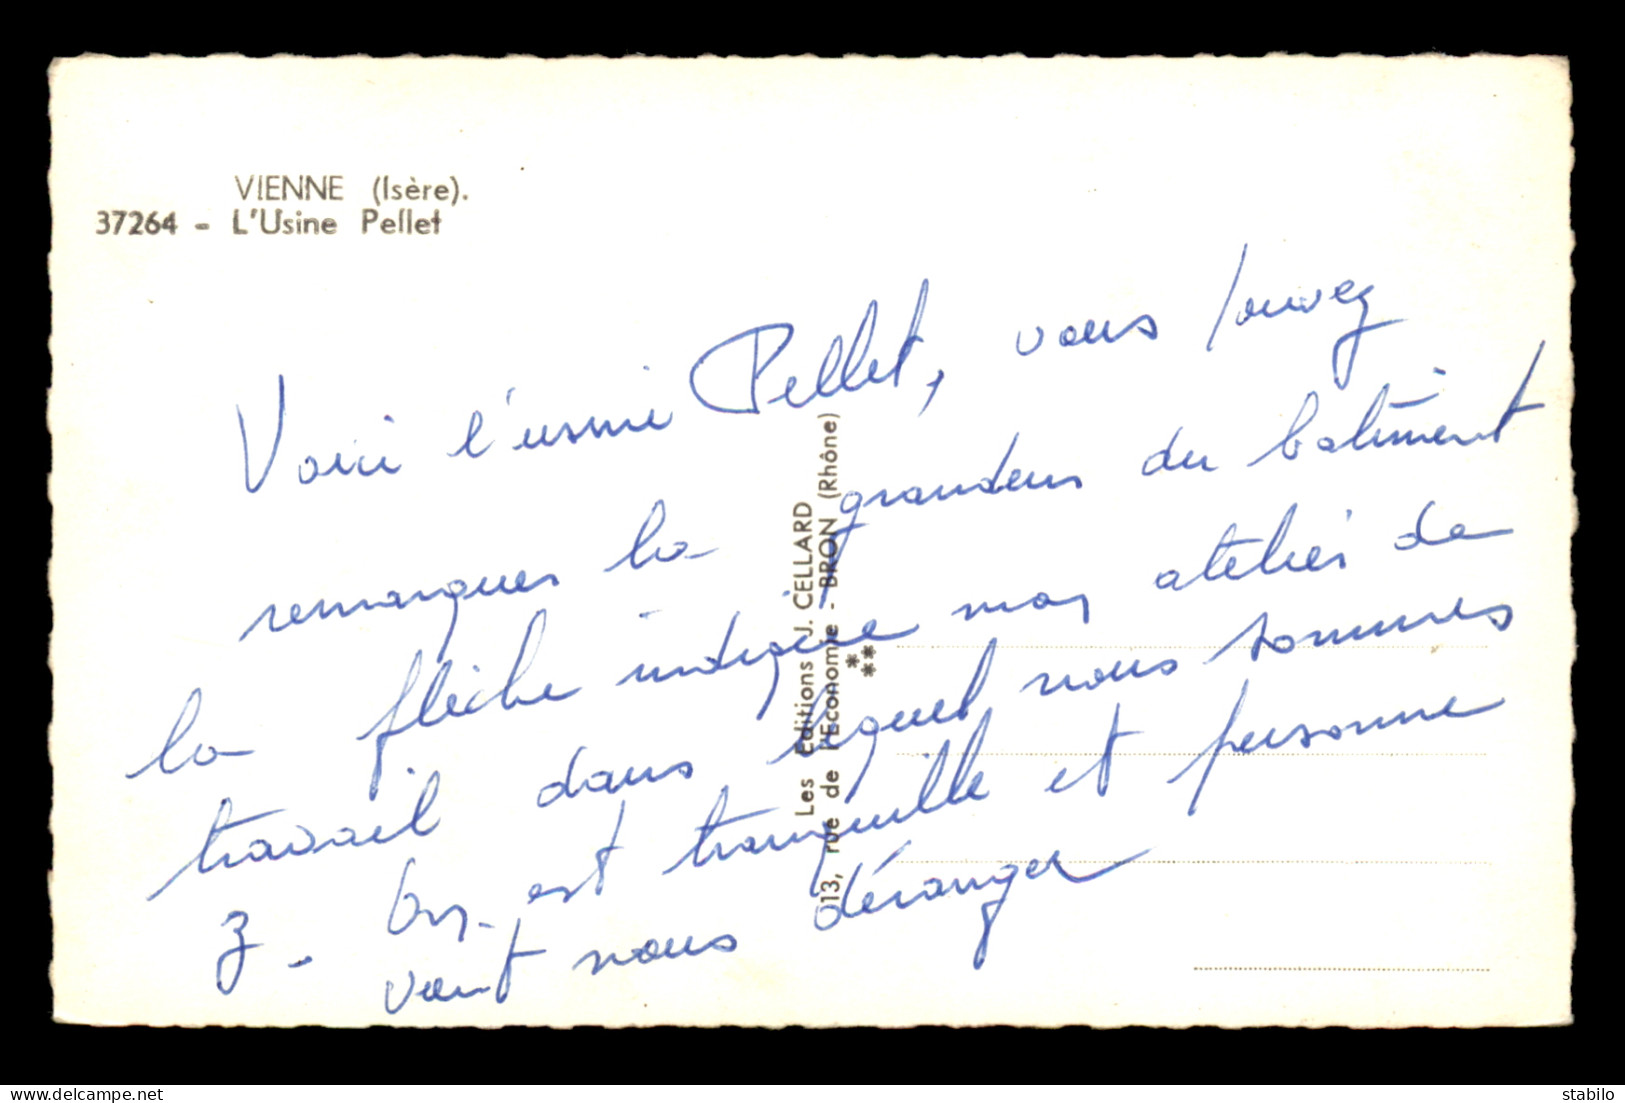 VIENNE (Isère).
37264 - L'Usine Pellet
Voici l'usine Pellet, vous pouvez
remarquer la grandeur du bâtiment
la flèche indique mon atelier de
travail dans lequel nous sommes
3 - On est tranquille et personne
vient nous déranger
Les Editions J. CELLARD
13, rue de l'Economie - BRON (Rhône)
stabilo